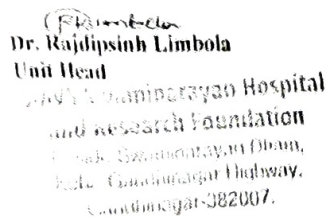 Dr. Rajdipsinh Limbola
Unit Head
Swaminarayan Hospital
and Research Foundation
Swaminarayan Dham,
Gandhinagar Highway,
Gandhinagar-382007.